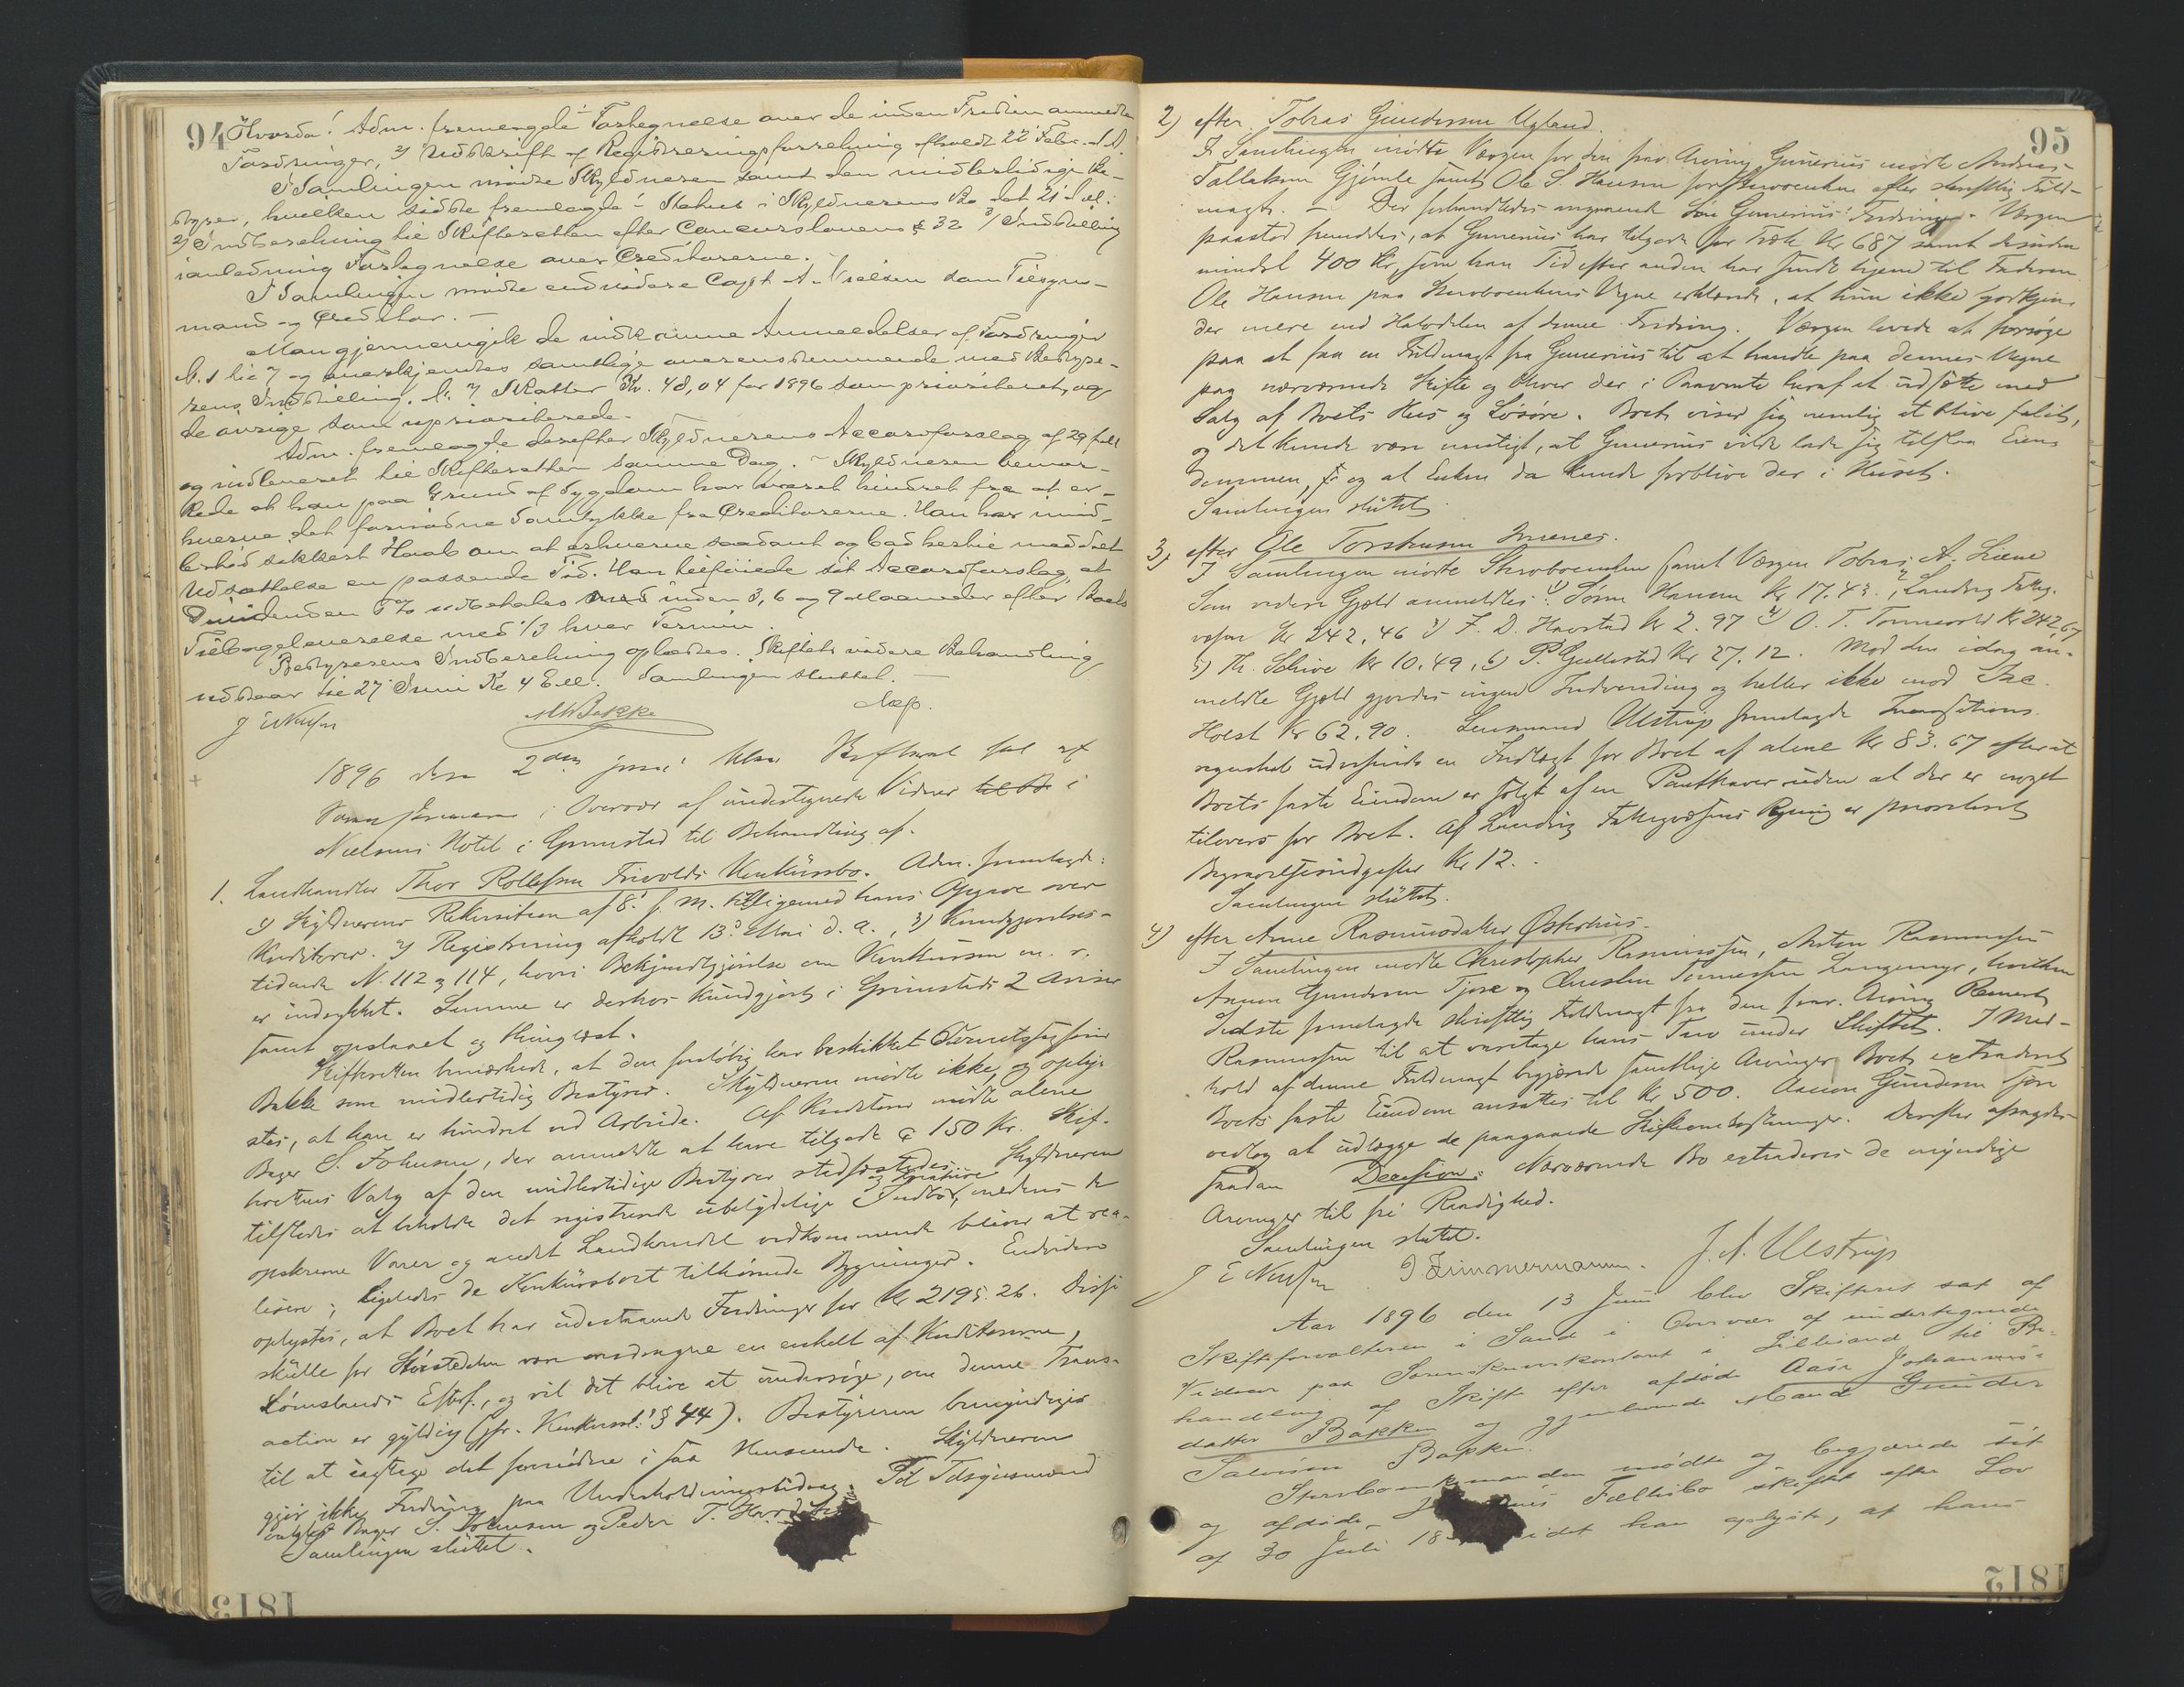 94
Hvorda! Adm. fremlagde Fortegnelse over de inden Fristen anmeldte
Fordringer, 2) Udskrift af Registreringsforretning afholdt 22 Febr. d. A.
I Samlingen mødte Skyldneren samt den midlertidige Be-
styrer, hvilken sidste fremlagde Status i Skyldnerens Bo dat 21
2) Indberetning til Skifteretten efter Concurslovens § 32 3) Indstilling
i anledning Fortegnelse over Creditorerne.
I Samlingen mødte endvidere Capt A. Nielsen som Tilsyns-
mand og Creditor. —
Man gjennemgik de indkomne Anmeldelser af Fordringer
N. 1 til 7 og anerkjendtes samtlige overensstemmende med Besty-
rens Indstilling. N. 7 Skatter Kr. 48,04 for 1896 som prioriteret, og
de øvrige som uprioriterede.
Adm. fremlagde derefter Skyldnerens Accordforslag af 29
og indleveret til Skifteretten samme Dag. — Skyldneren bemær-
kede at han paa Grund af Sygdom har været hindret fra at er-
hverve det fornødne Samtykke fra Creditorerne. Han har imid-
lertid sikkert Haab om at erhverve saadant og bad hertil meddelt
Udsættelse en passende Tid. Han tilføiede sit Accordforslag, at
Dividenden udbetales inden 3, 6 og 9 Maaneder efter Boets
Tilbageleverelse med 1/3 hver Termin.
Bestyrerens Indberetning oplæstes. Skiftets videre Behandling
udstaar til 27 Juni Kl 4 Eft. Samlingen sluttet. —
J E Nielsen
Bakke
1896 den 2den juni blev Skifteret sat af
Sorenskriveren i Overvær af undertegnede Vidner i
Nielsens Hotel i Grimstad til Behandling af.
1. Landhandler Thor Rollefsen Frivolds Konkursbo. Adm. fremlagde:
1) Skyldnerens Rekvisition af 8. f. M. tilligemed hans Opgave over
Kreditorer. 2) Registrering afholdt 13. Mai d. A., 3) Kundgjørelses-
tidende N. 112 og 114, hvori Bekjendtgjørelse om Konkursen m. v.
er indrykket. Samme er derhos kundgjort i Grimstads 2 Aviser
samt opslaaet og thinglæst.
Skifteretten bemærkede, at den foreløbig har beskikket Overretssagfører
Bakke som midlertidig Bestyrer. Skyldneren mødte ikke, og oply-
stes, at han er hindret ved Arbeide. Af Kreditorer mødte alene
Bager S. Johnsen, der anmeldte at have tilgode 150 Kr. Skif-
terettens Valg af den midlertidige Bestyrer stadfæstedes. Skyldneren
tilstedes at beholde det registrerede ubetydelige Indbo, medens de
opskrevne Varer og andet Landhandel vedkommende bliver at rea-
lisere; ligeledes de Konkursboet tilhørende Bygninger. Endvidere
oplystes, at Boet har udestaaende Fordringer for Kr 2195.26. Disse
skulle for Størstedelen være overdragne en enkelt af Kreditorerne,
Lømslands Eftf., og vil det blive at undersøge, om denne Trans-
action er gyldig (jfr. Konkursl. § 44). Bestyreren bemyndiges
til at iagttage det fornødne i saa Henseende. Skyldneren
gjør ikke Fordring paa Underholdningsbidrag. Til Tilsynsmænd
valgtes Bager S. Johnsen og Peder T.
Samlingen sluttet.
1813
95
2) efter Tobias Gundersen Ugland.
I Samlingen mødte Værgen for den frav. Arving Gunerius mødte Andreas
Tallaksen Gjømle samt Ole S. Hansen for Stervboenken efter skriftlig Fuld-
magt. — Der forhandledes angaaende Søn Gunerius' Fordringer. Værgen
paastod fremdeles, at Gunerius har tilgode for Træk Kr 687 samt desuden
mindst 400 Kr, som han Tid efter anden har sendt hjem til Faderen
Ole Hansen paa Stervboenkens Vegne erklærede, at hun ikke godkjen-
der mere end Halvdelen af denne Fordring. Værgen lovede at forsøge
paa at faa en Fuldmagt fra Gunerius til at handle paa dennes Vegne
paa nærværende Skifte og bliver der i Paavente heraf at udsætte med
Salg af Boets Hus og Løsøre. Boet viser sig nemlig at blive fallit,
og det kunde være muligt, at Gunerius vilde lade sig tilslaa Eien-
dommen, og at Enken da kunde forblive der i Huset.
Samlingen sluttet.
3) efter Ole Torstensen
I Samlingen mødte Stervboenken samt Værgen Tobias A. Liene
Som videre Gjæld anmeldtes: 1) Sørine Hansen Kr 17.43., 2) Landvig Fattig-
væsen Kr 242.46 3) F. D. Havstad Kr 2.97 4) O. T. Tønnevold Kr 242,67
5) Th. Schive Kr 10.49, 6) P. Gullestad Kr 27.12. Mod den idag an-
meldte Gjæld gjordes ingen Indvending og heller ikke mod Isc.
Holst Kr 62.90. Lensmand Ulstrup fremlagde Incassations-
regnskab udvisende en Indtægt for Boet af alene Kr 83.67 efterat
Boets faste Eiendom er solgt af en Panthaver uden at der er noget
tilovers for Boet. Af Landvig Fattigvæsens Regning er prioriteret
Begravelsesudgifter Kr 12.
Samlingen sluttet.
4) efter Anne Rasmusdatter Østerhus.
I Samlingen mødte Christopher Rasmussen, Anton Rasmussen
Aanon Gundersen Tjore og Christen Tønnessen Langemyr, hvilken
sidste fremlagde skriftlig Fuldmagt fra den frav. Arving Reinert
Rasmussen til at varetage hans Tarv under Skiftet. I Med-
hold af denne Fuldmagt begjærede samtlige Arvinger Boet extraderet
Boets faste Eiendom ansattes til Kr 500. Aanon Gundersen Tjore
vedtog at udlægge de paagaaende Skifteomkostninger. Derefter afsagdes
saadan Decision: Nærværende Bo extraderes de myndige
Arvinger til fri Raadighed.
Samlingen sluttet.
J E Nielsen Zimmermann. J. A. Ulstrup
Aar 1896 den 13 Juni blev Skifteret sat af
Skifteforvalteren i Sand i Overvær af undertegnede
Vidner paa Sorenskriverkontoret i Lillesand til Be-
handling af Skifte efter afdøde Aase Johannes-
datter Bakken og gjenlevende Mand Gunder
Salvesen Bakken.
Stervboenkemanden mødte og begjærede sit
og afdøde Fællesbo skiftet efter Lov
af 30 Juli 18 idet han oplyste, at hans
1812